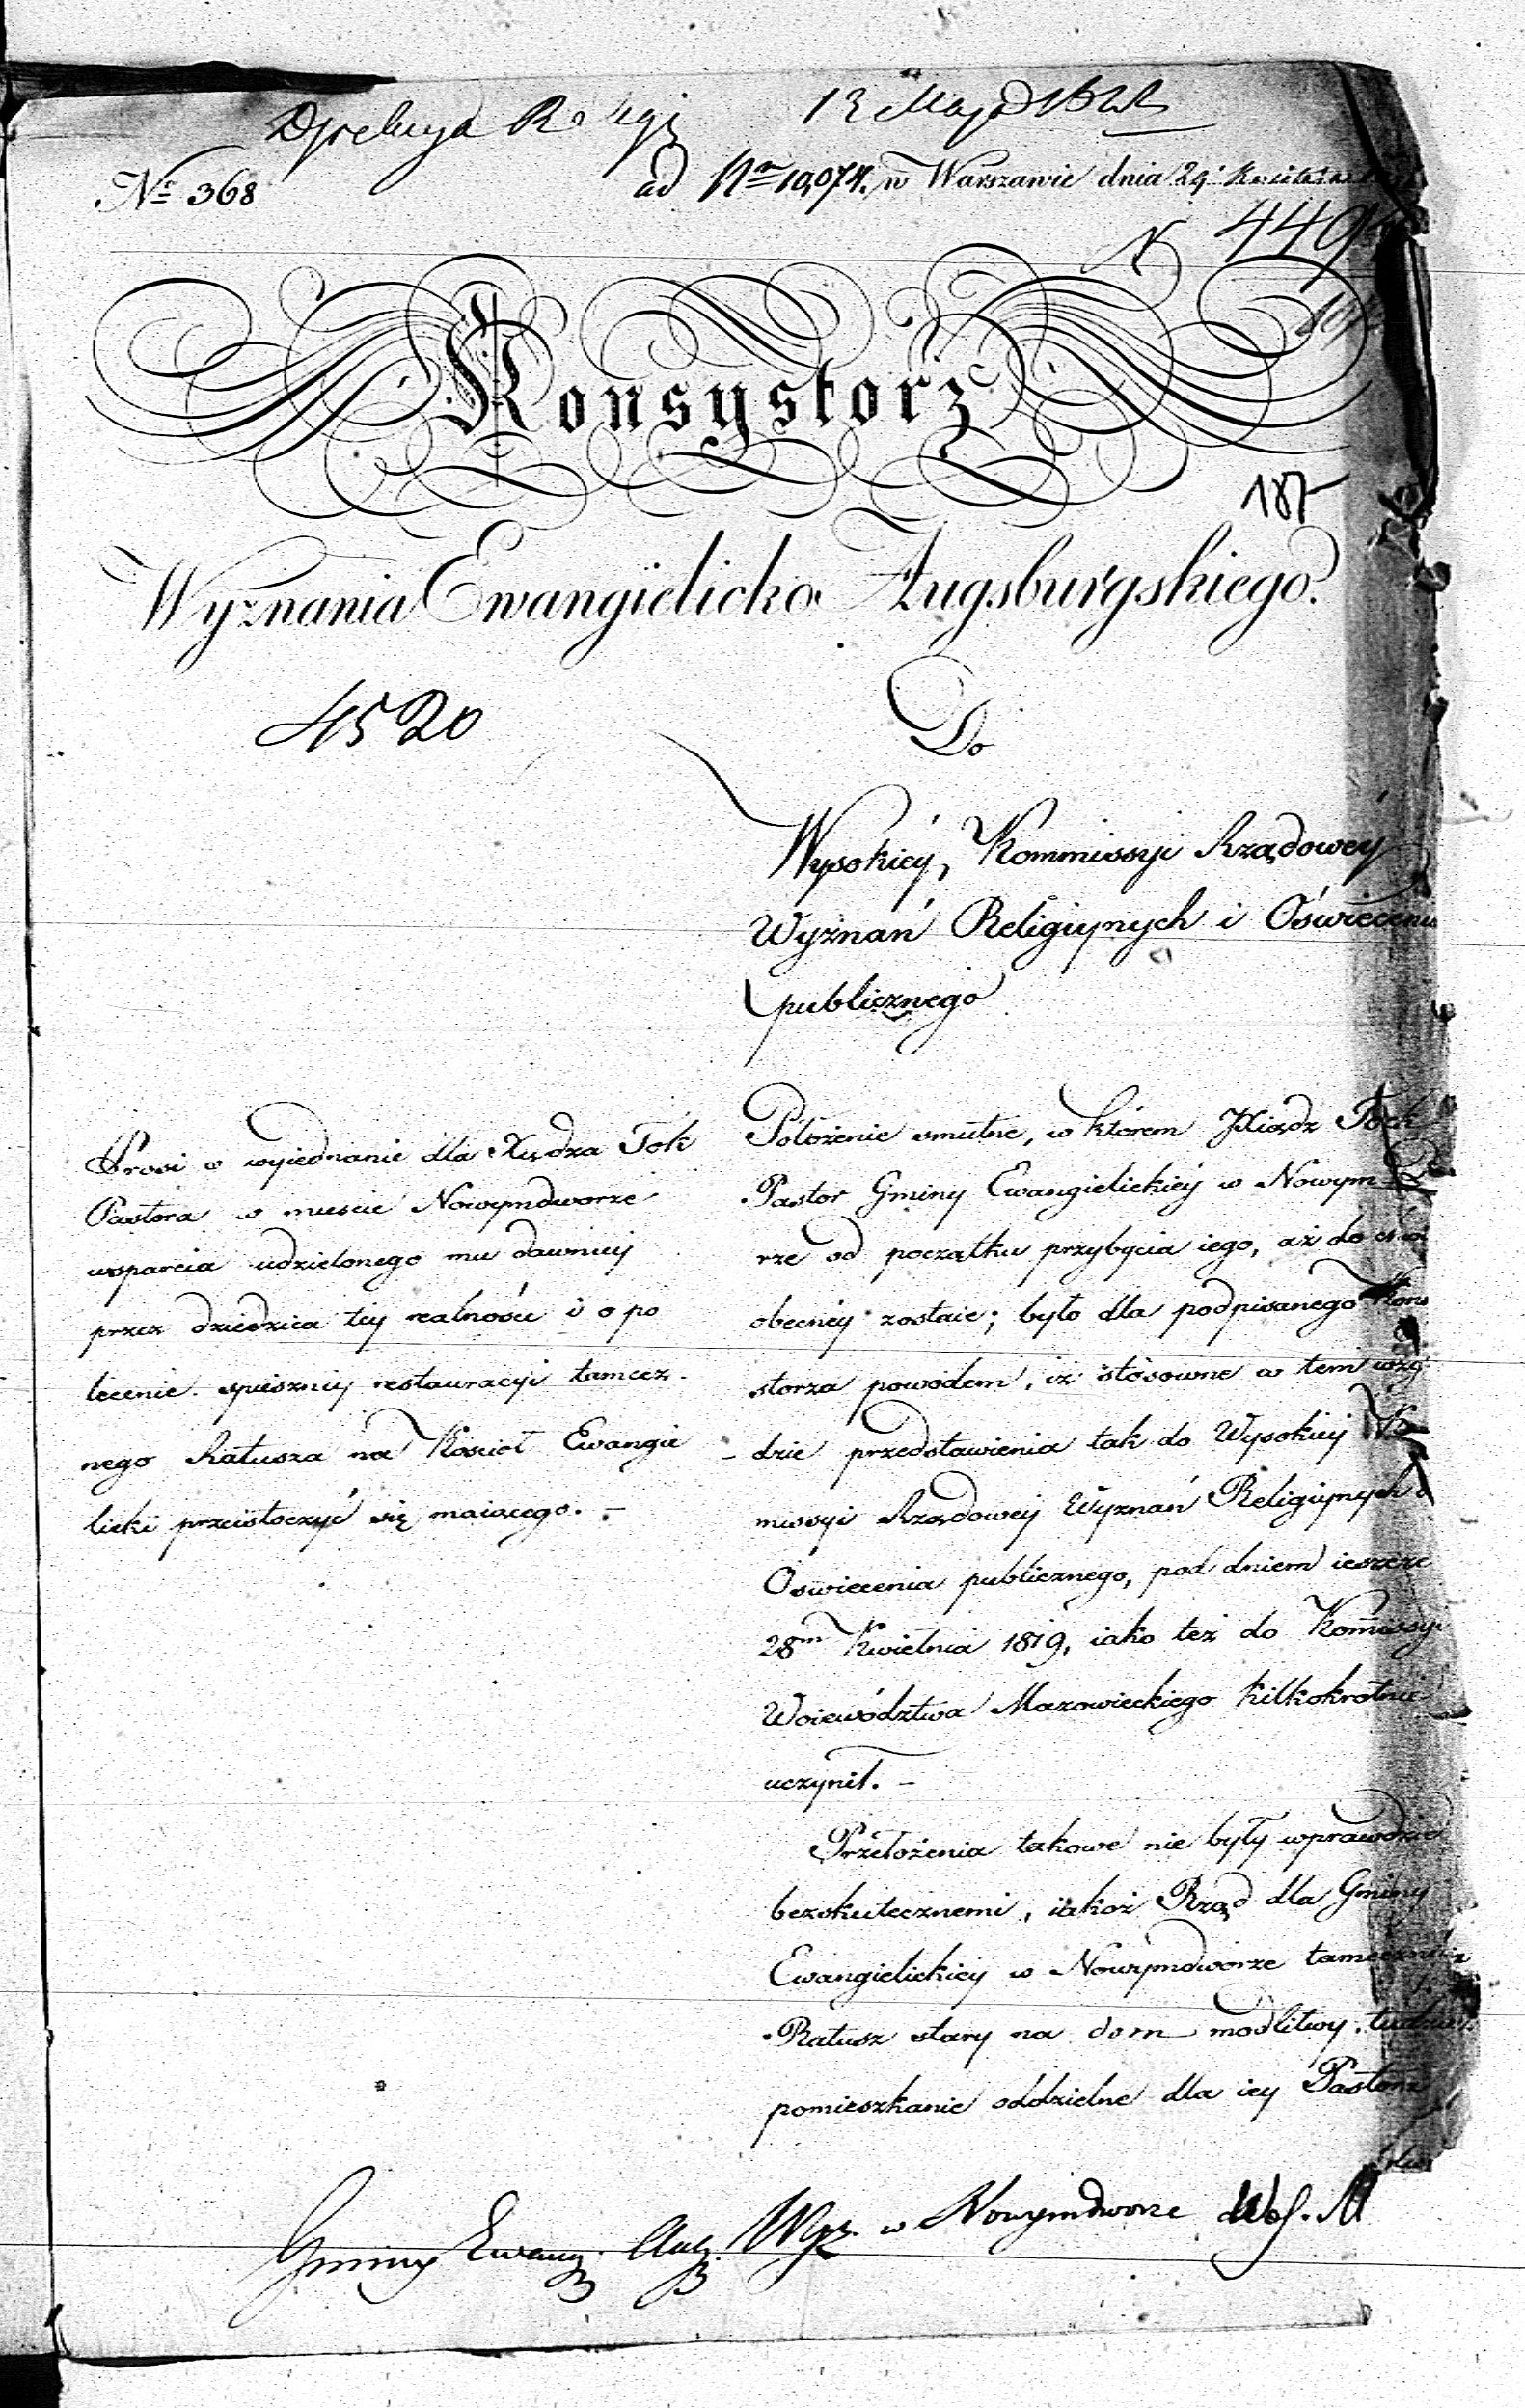 Dyrekcya Religij 12 Maja
No 368
ad Nrm 19,074. w Warszawie dnia 29. Kwietnia
N 449
Konsystorz
187
Wyznania Ewangielicko Augsburgskiego.
4520
Do
Wysokiéy Kommissyi Rządowéy
Wyznań Religiynych i Oświecenia
publicznego
Prosi o wyiednanie dla Xiędza Tok
Pastora w mieście Nowymdworze
wsparcia udzielonego mu dawniej
przez dziedzica tey realności i o po
lecenie spieszniej restauracyi tamecz-
nego Ratusza na Kościoł Ewangie
licki przeistoczyć się maiącego. -
Położenie smutne, w którem Xiądz Tock
Pastor Gminy Ewangielickiéy w Nowym
rze od początku przybycia iego, aż do
obecnéy zostaie; było dla podpisanego Kons
storza powodem, iż stósowne w tem wzg
dzie przedstawienia tak do Wysokiey Ko
missyi Rządowey Wyznań Religiynych
Oświecenia publicznego, pod dniem ieszcze
28m Kwietnia 1819, iako też do Kom̄issyi
Woiewództwa Mazowieckiego kilkokrotnie
uczynił. -
Przełożenia takowe nie były wprawdzie
bezskutecznemi, iakoż Rząd dla Gminy
Ewangielickiey w Nowymdworze
Ratusz stary na dom modlitwy,
pomieszkanie oddzielne dla iey Pastora
Gminy Ewang. Aug. Wyz. w Nowymdworze Wof. M